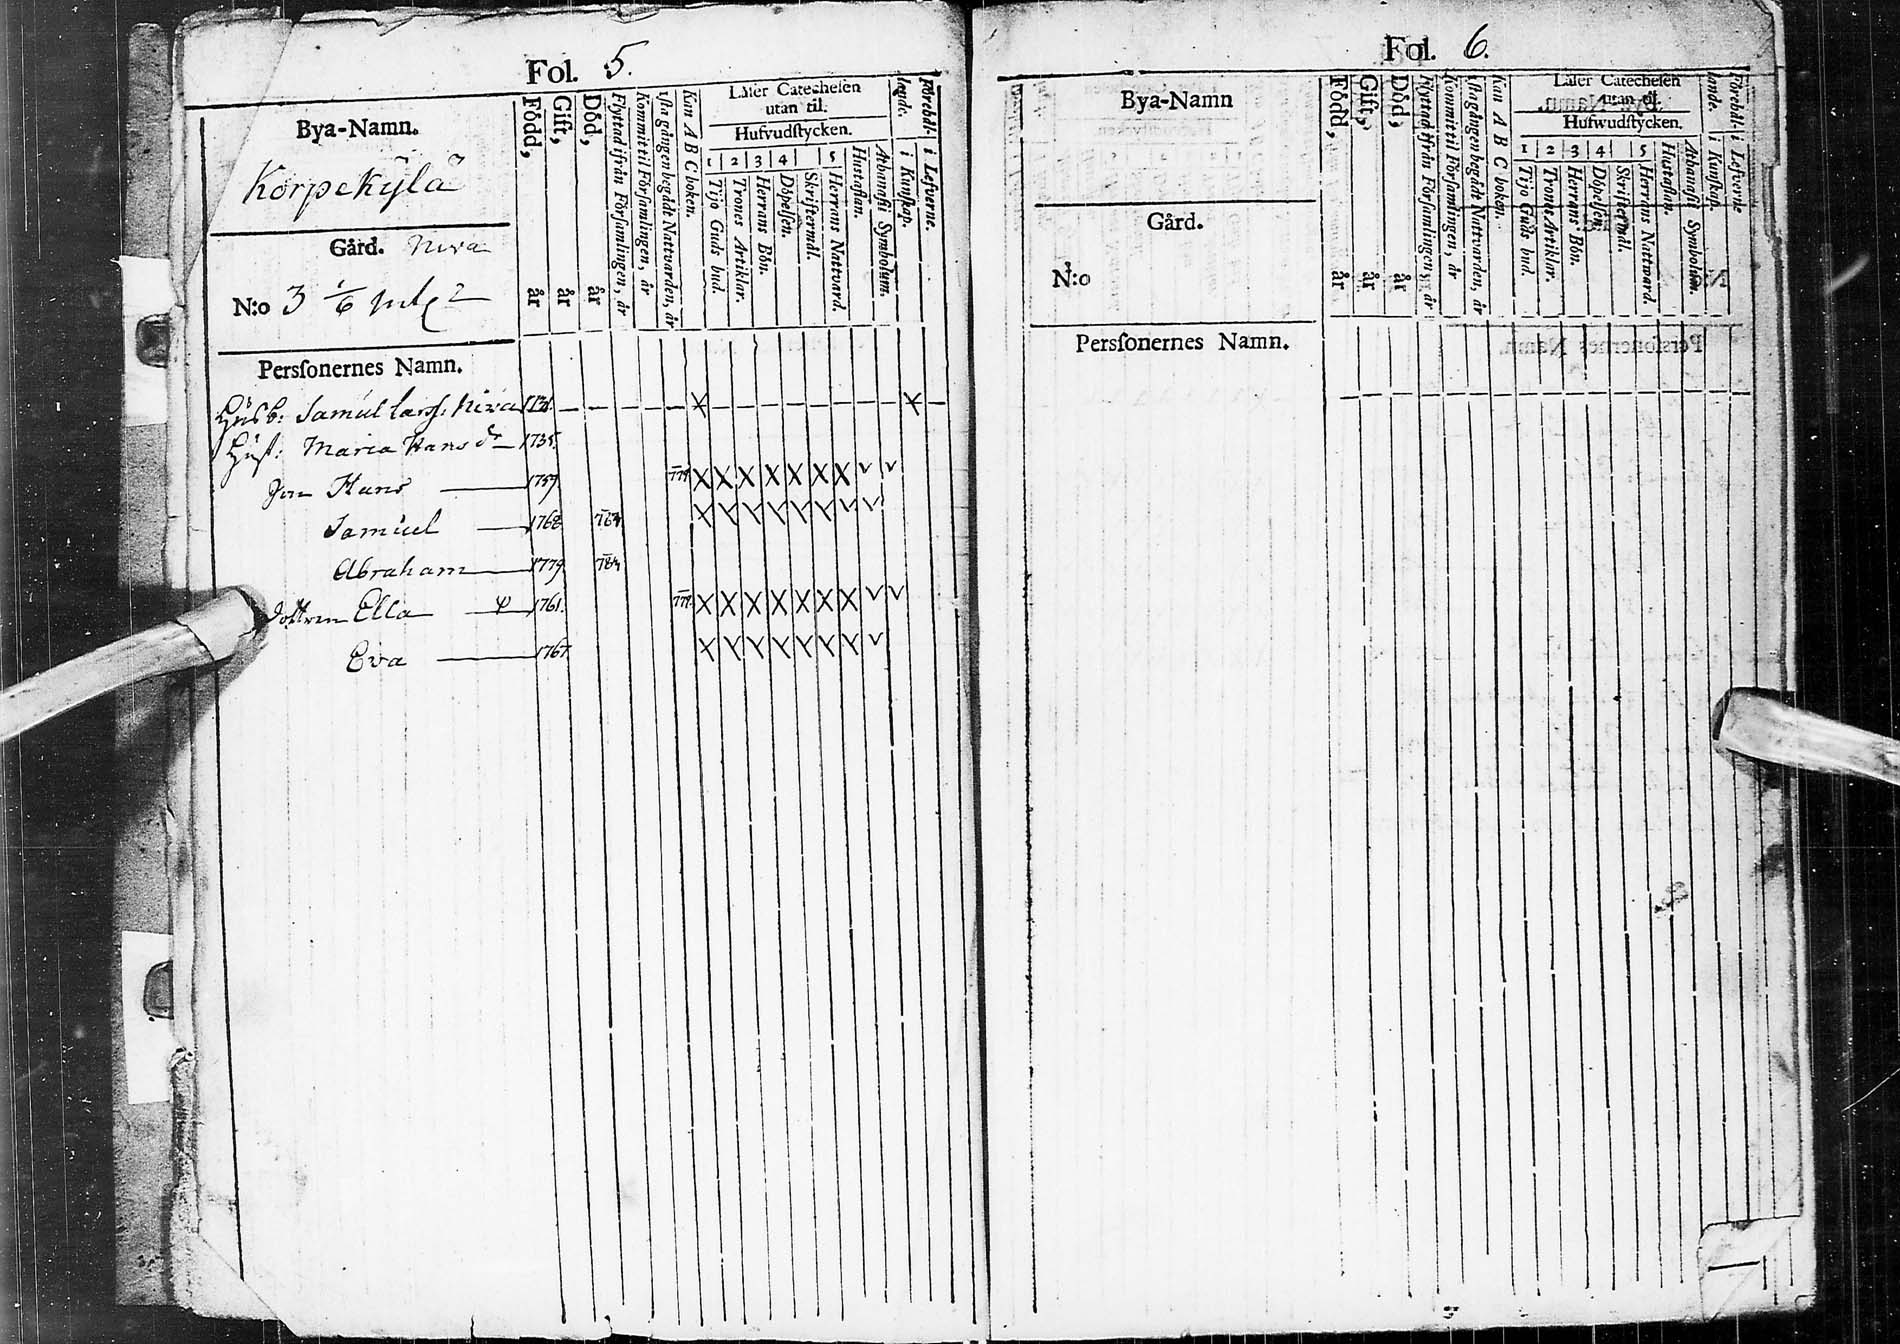 Fol. 5.
Bya-Namn.
Korpekylä
Gård. Niva
N:o 3 1/6
Född, år
Gift, år
Död, år
Flyttad ifrån Församlingen, år
Kommit til Församlingen, år
1sta gången begådt Nattvarden, år
Kan A B C boken.
Läser Catechesen utan til.
Hufvudstycken.
1 2 3 4 5
Tijo Guds bud.
Trones Artiklar.
Herrans Bön.
Döpelsen.
Skriftermål.
Herrans Nattvard.
Hustaflan.
Athanasii Symbolum.
i Kunskap.
i Lefverne.
Persſonernes Namn.
Husb: Samuel Larss: Niva
Hust: Maria Hans dr 1735.
Son Hans 1759
Samuel 1768
Abraham 1779 784
Dottren Ella 1761.
Eva 1767
Fol. 6.
Bya-Namn
Gård.
N:o
Född, år
Gift, år
Död, år
Flyttad ifrån Församlingen, år
Kommit til Församlingen, år
1sta gången begådt Nattvarden, år
Kan A B C boken.
Läser Catechesen utan til.
Hufwudstycken.
1 2 3 4 5
Tijo Guds bud.
Trones Artiklar.
Herrans Bön.
Döpelsen.
Skriftermål.
Herrans Nattward.
Hustaflan.
Athanasii Symbolum.
i Kunskap.
i Lefverne
Persſonernes Namn.